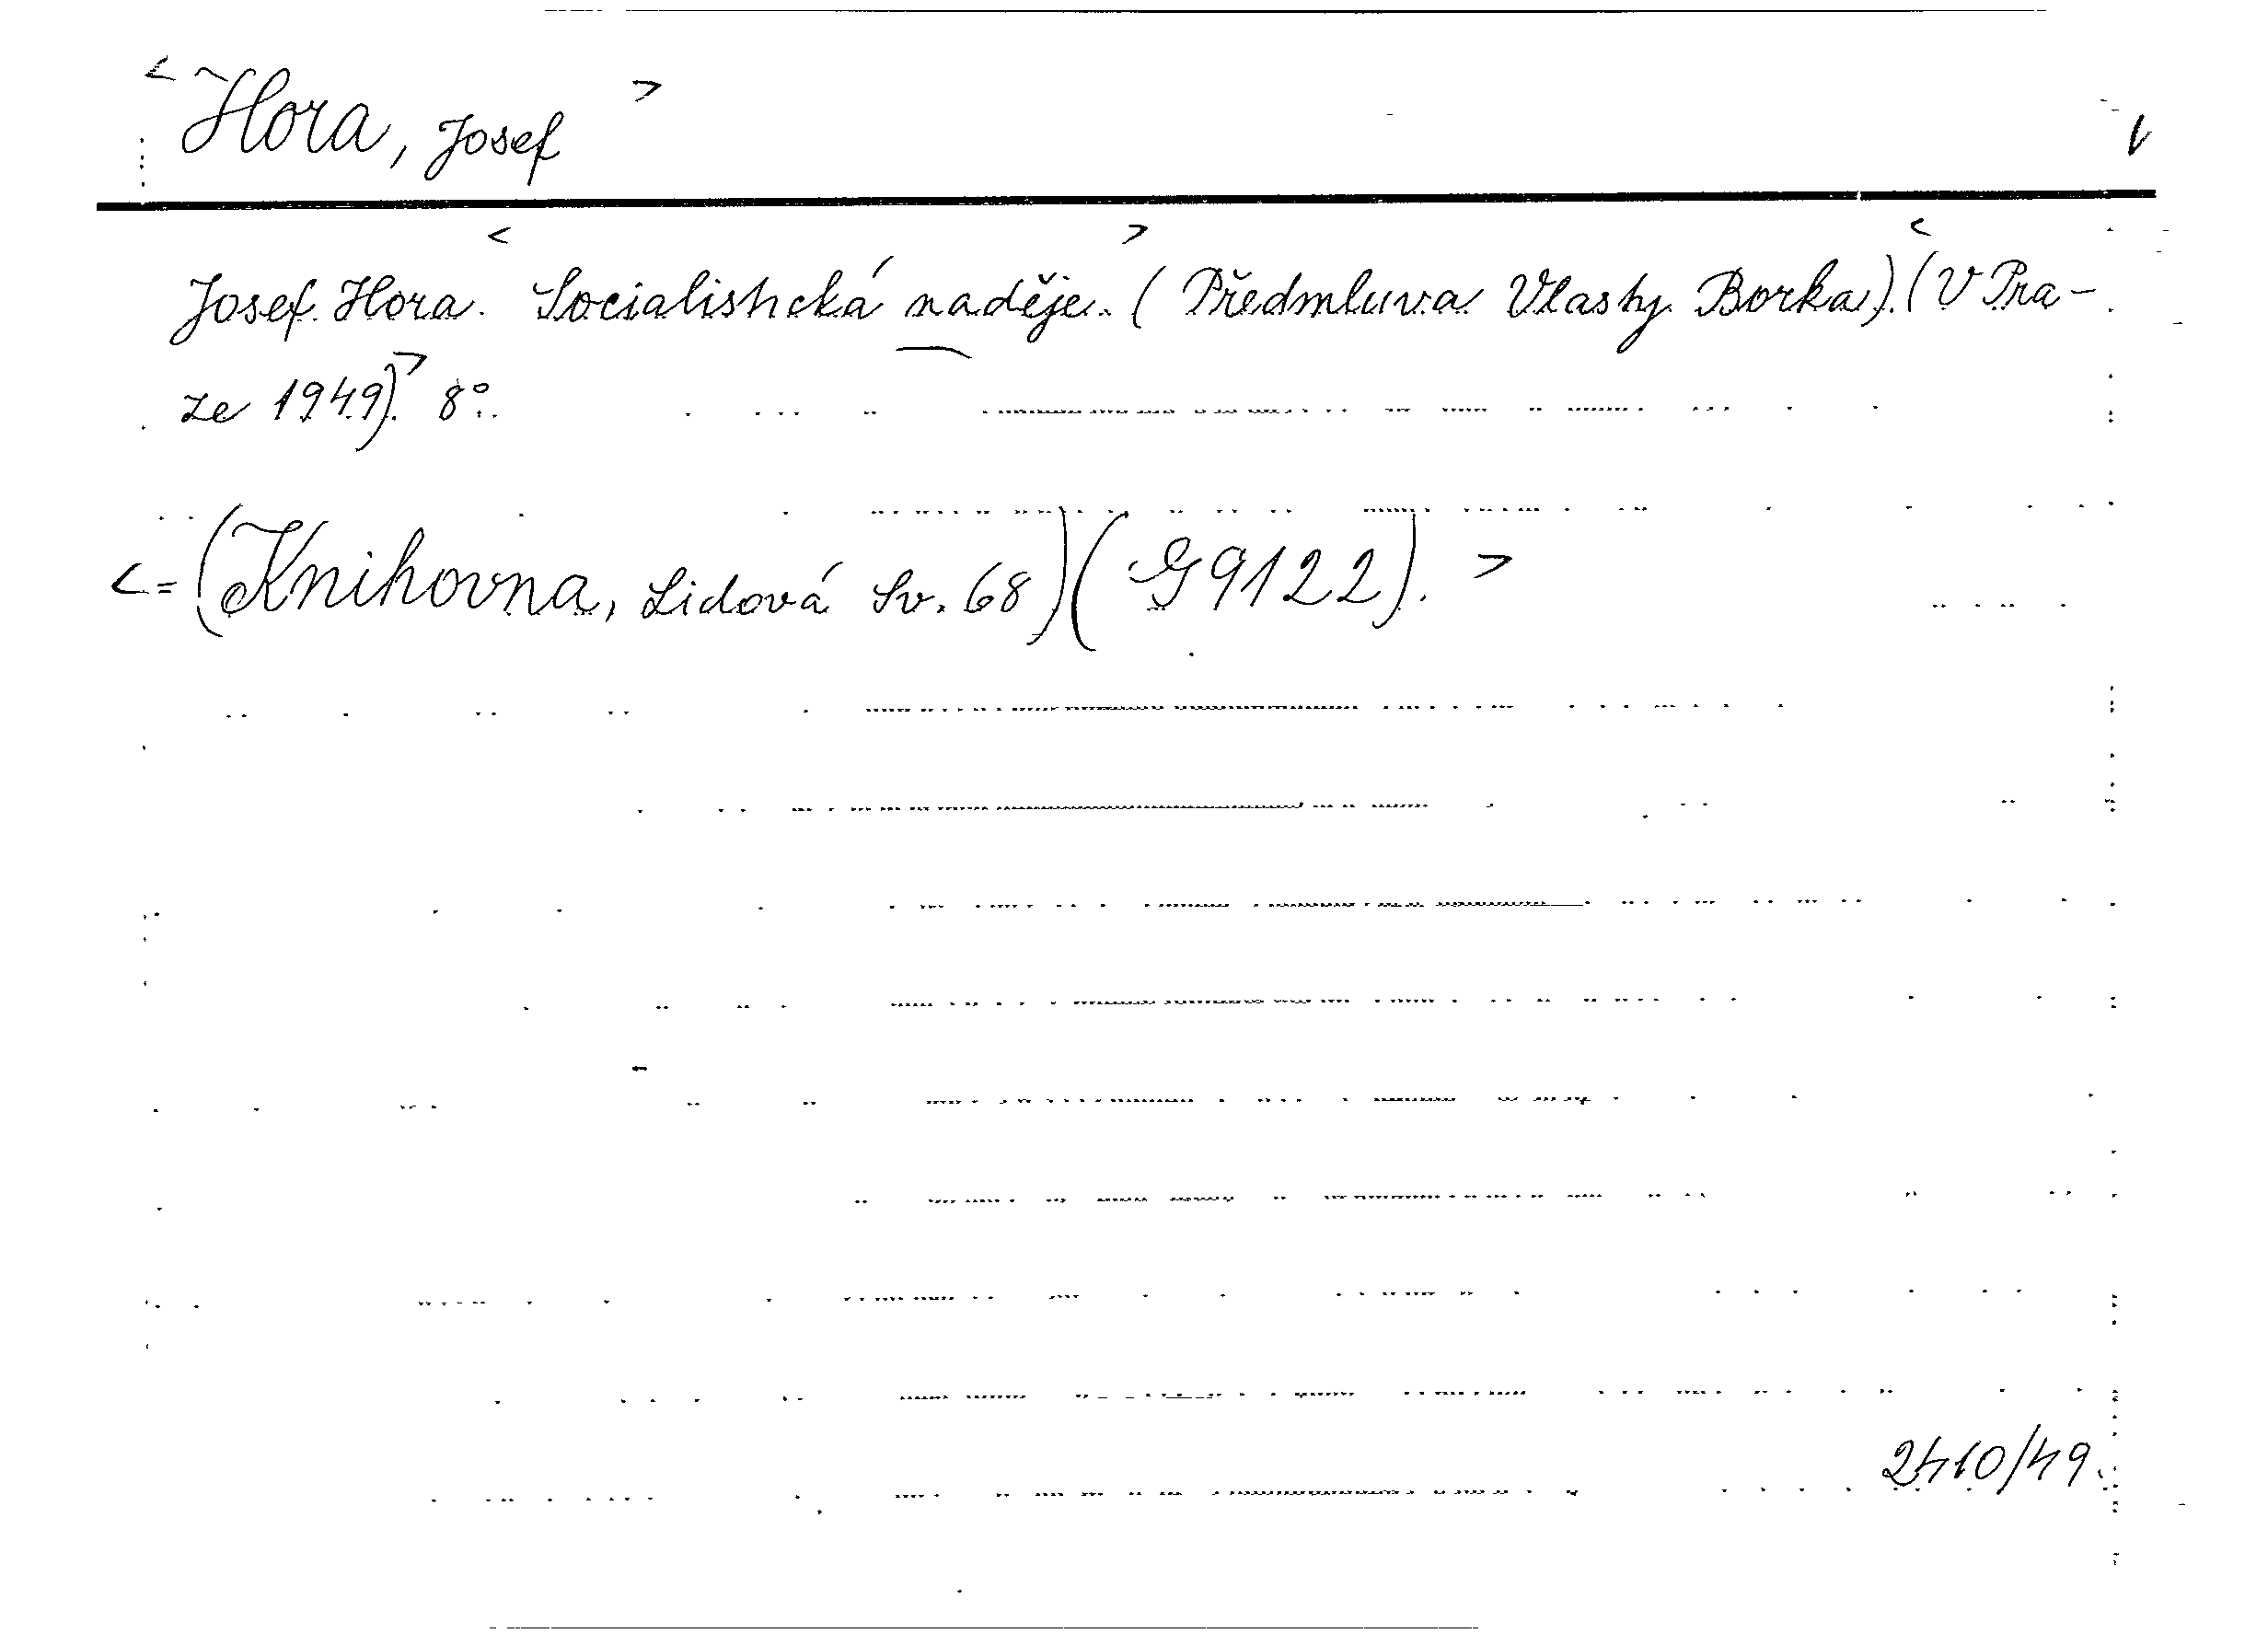 < Hora, Josef >
Josef Hora. < Socialistická naděje. > (Předmluva Vlasty Borka). < (V Pra-
ze 1949). > 8°.
< = (Knihovna, Lidová Sv. 68) (G 9122). >
2410/49.